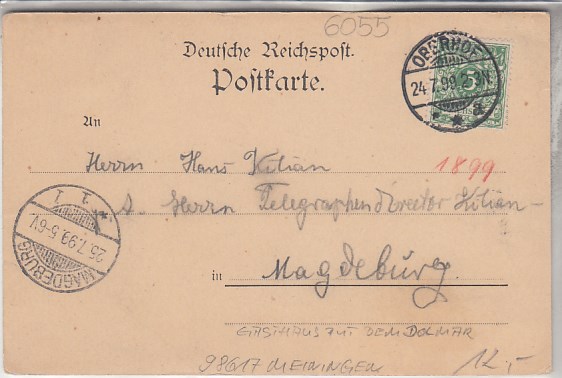 6055
Deutsche Reichspost.
Postkarte.
OBERHOF
24.7.99. 2-3N
5
An
Herrn Hans Kilian
1899
Herrn Telegraphendirector Kilian-
MAGDEBURG
25.7.99.5-6V.
1
in Magdeburg.
GASTHAUS AUF DEM DOLMAR
98617 MEININGEN
12,-